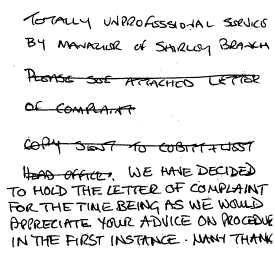 TOTALLY UNPROFESSIONAL SERVICE
BY MANAGER OF SHIRLEY BRANCH
PLEASE SEE ATTACHED LETTER
OF COMPLAINT
COPY SENT TO CUBITT & WEST
HEAD OFFICE. WE HAVE DECIDED
TO HOLD THE LETTER OF COMPLAINT
FOR THE TIME BEING AS WE WOULD
APPRECIATE YOUR ADVICE ON PROCEDURE
IN THE FIRST INSTANCE. MANY THANK